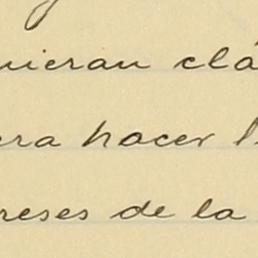 uieran clá
era hacer l
reses de la